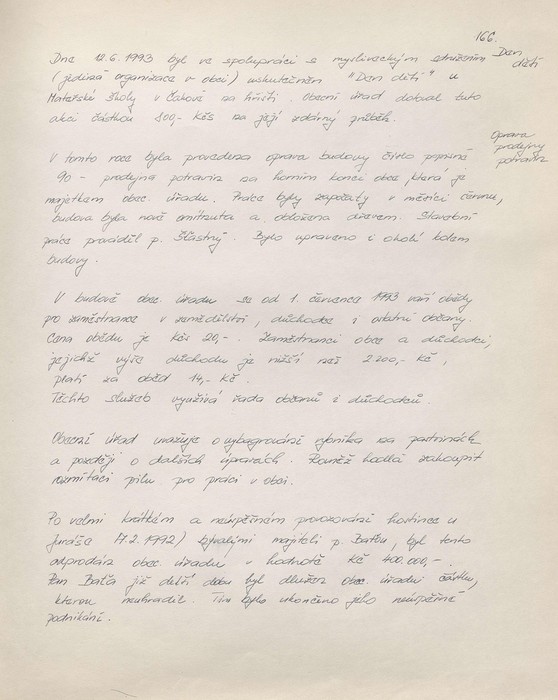 166.
Dne 12.6.1993 byl ve spolupráci s mysliveckým sdružením Den
(jediná organizace v obci) uskutečněn "Den dětí" u dětí
Mateřské školy v Čakově na hřišti. Obecní úřad dotoval tuto
akci částkou 800,- Kčs na její zdárný průběh.
Oprava
prodejny
potravin
V tomto roce byla provedena oprava budovy číslo popisné
90 - prodejna potravin na horním konci obce, která je
majetkem obec. úřadu. Práce byly započaty v měsíci červnu,
budova byla nově omítnuta a obložena dřevem. Stavební
práce prováděl p. Šťastný. Bylo upraveno i okolí kolem
budovy.
V budově obec. úřadu se od 1. července 1993 vaří obědy
pro zaměstnance v zemědělství, důchodce i ostatní občany.
Cena obědu je Kčs 20,-. Zaměstnanci obce a důchodci,
jejichž výše důchodu je nižší než 2.200,- Kč,
platí za oběd 14,- Kč.
Těchto služeb využívá řada občanů i důchodců.
Obecní úřad uvažuje o vybagrování rybníka na
a později o dalších úpravách. Rovněž hodlá zakoupit
rozmítací pilu pro práci v obci.
Po velmi krátkém a neúspěšném provozování hostince u
Juráše 17.2.1992) bývalými majiteli p. Baťou, byl tento
odprodán obec. úřadu v hodnotě Kč 400.000,-.
Pan Baťa již delší dobu byl dlužen obec. úřadu částku,
kterou neuhradil. Tím bylo ukončeno jeho neúspěšné
podnikání.